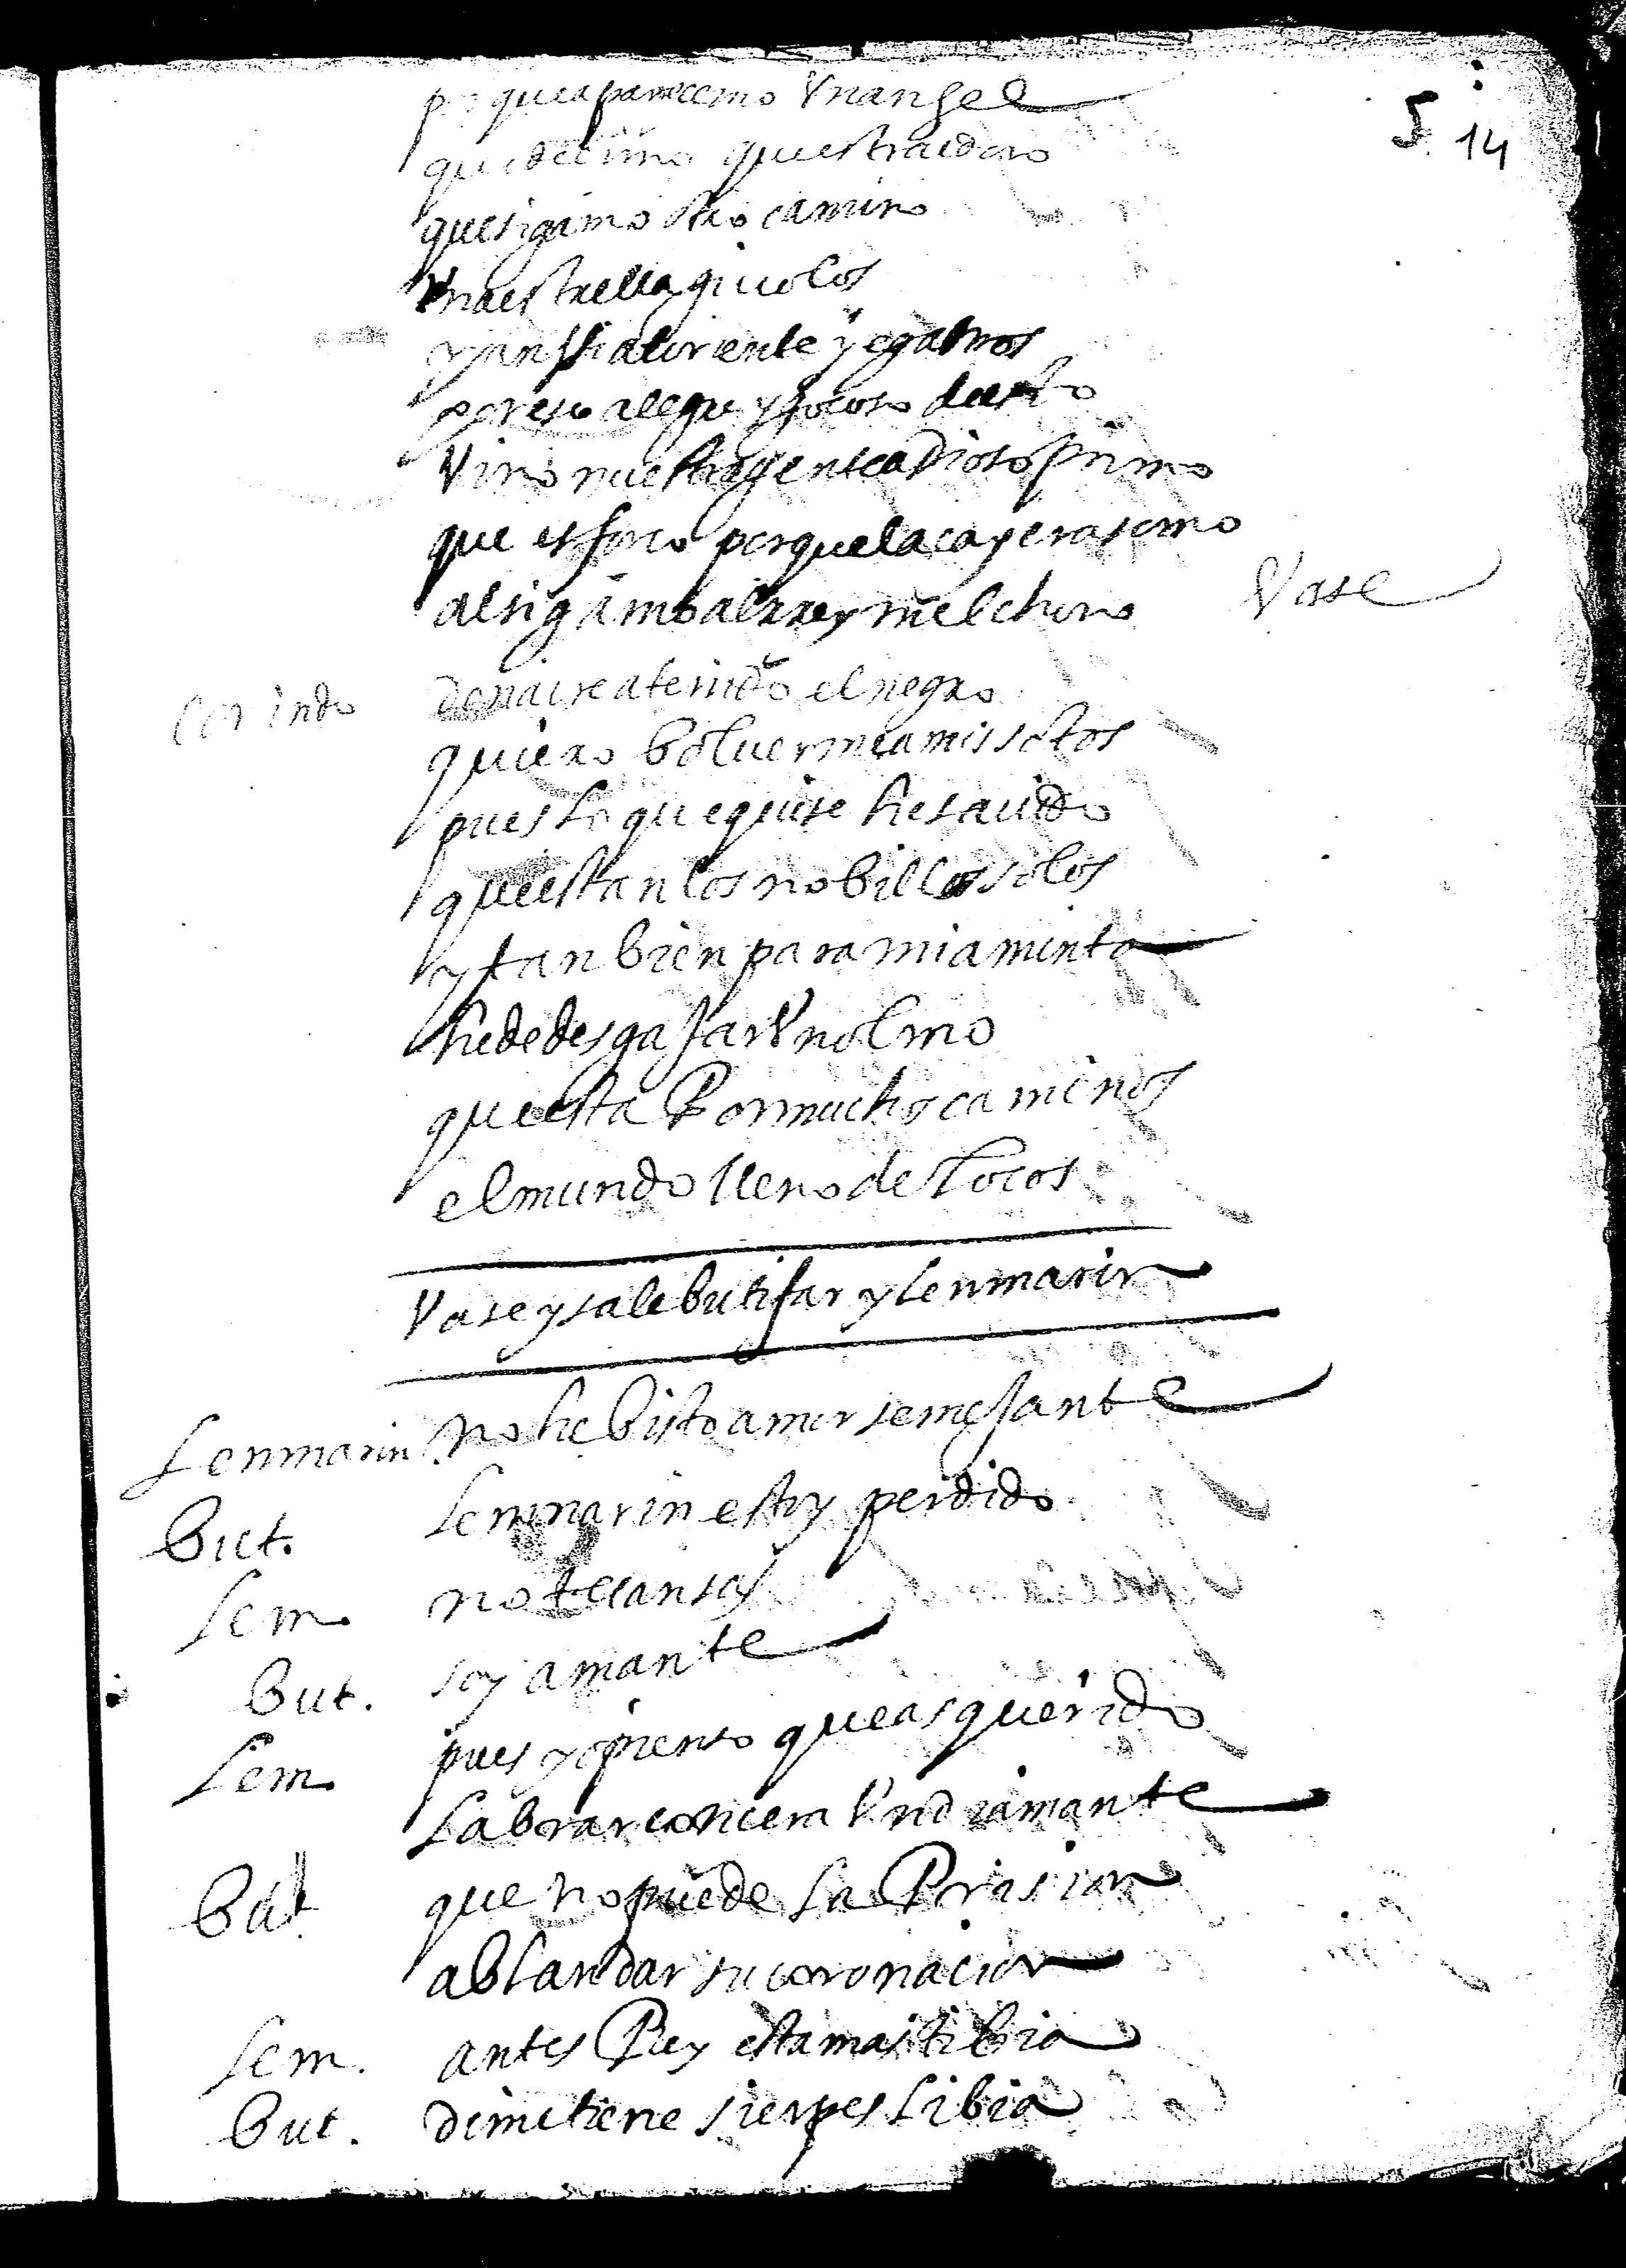 5 14
que aparecemo Vn angel
que decimo questraidoro
que sigamo otro camino
Vna estrella qui volos
y ansi al oriente yegamos
por eso alegre y gocoso desto
Vino nuestra gente a Dioso primo
que es forco porque la ca yerasemo
al sigamo al rrey melchoro Vase
Corindo donaire a tenido el negro
quiero boluerme a mis sotos
pues lo que quise he sauido
que estan los nobillos solos
y tanbien para mi aminta
he de desgajar Vn olmo
que esta Por muchos caminos
el mundo lleno de locos
Vase y sale butifar y lenmarin
Lenmarin no he bisto amor semejante
But. lenmarin estoy perdido
Lem no te cansas
But. soy amante
Lem pues yo pienso que as querido
labrar con cera Vn diamante
But que no puede la Pasion
ablandar su coronacion
Lem. antes Rey esta mas tibia
But. dime tiene sierpes libia